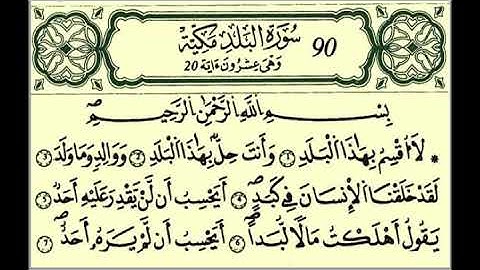 سُورَةُ الْبَلَدِ مَكِّيَّةٌ 90
وَهِيَ عِشْرُونَ ءَايَة 20
بِسْمِ اللَّهِ الرَّحْمَٰنِ الرَّحِيمِ
* لَا أُقْسِمُ بِهَٰذَا الْبَلَدِ ۝1 وَأَنتَ حِلٌّ بِهَٰذَا الْبَلَدِ ۝2 وَوَالِدٍ وَمَا وَلَدَ ۝3
لَقَدْ خَلَقْنَا الْإِنسَانَ فِي كَبَدٍ ۝4 أَيَحْسِبُ أَن لَّنْ يَقْدِرَ عَلَيْهِ أَحَدٌ ۝5
يَقُولُ أَهْلَكْتُ مَالًا لُّبَدًا ۝6 أَيَحْسِبُ أَن لَّمْ يَرَهُ أَحَدٌ ۝7